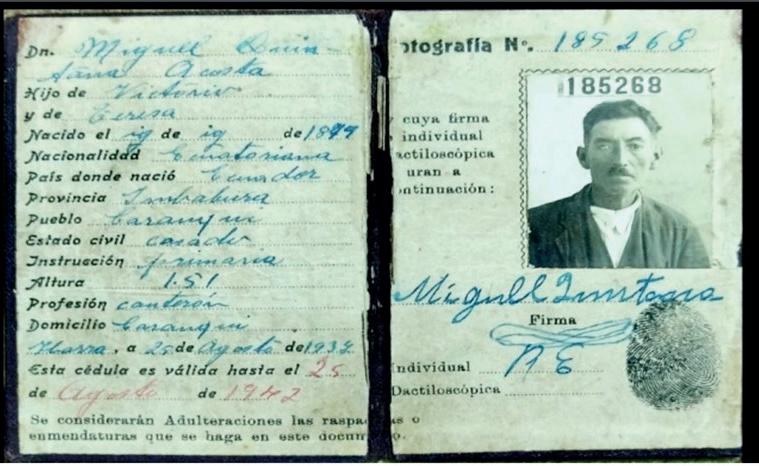 Dn. Miguel Quin-
tana Acosta
Hijo de Victorio
y de Teresa
Nacido el ig de ig de 1899
Nacionalidad Ecuatoriana
País donde nació Ecuador
Provincia Imbabura
Pueblo Caranqui
Estado civil casado
Instrucción primaria
Altura 1.51
Profesión canterón
Domicilio Caranqui
Ibarra, a 25 de Agosto de 193
Esta cédula es válida hasta el 25
de Agosto de 1942
Se considerarán Adulteraciones las raspa
enmendaturas que se haga en este docum
otografía Nº. 185268
185268
cuya firma
individual
actiloscópica
uran a
ontinuación:
Miguel Quintana
Firma
Individual
Dactiloscópica
as o
o.